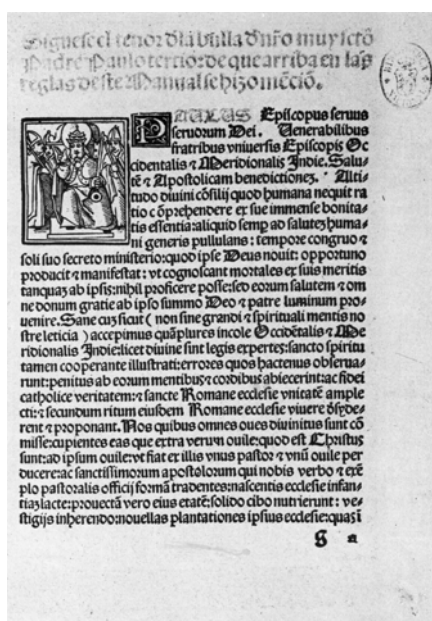 Siguese el tenor dla bulla d'nro muy scto
Padre Paulo tercio: de que arriba en las
reglas deste Manual se hizo mẽciõ.
PAULUS Episcopus seruus
seruorum Dei. Uenerabilibus
fratribus vniuersis Episcopis Oc
cidentalis ⁊ Meridionalis Indie. Salu-
tẽ ⁊ Apostolicam benedictionez. Alti-
tudo diuini cõsilij quod humana nequit ra
tio cõprehendere ex sue immense bonita-
tis essentia: aliquid semp ad salutez huma-
ni generis pullulans: tempore congruo ⁊
soli suo secreto ministerio: quod ipse Deus nouit: opportuno
producit ⁊ manifestat: vt cognoscant mortales ex suis meritis
tanquaz ab ipsis: nihil proficere posse: sed eorum salutem ⁊ om
ne donum gratie ab ipso summo Deo ⁊ patre luminum pro-
uenire. Sane cuz sicut (non sine grandi ⁊ spirituali mentis no
stre leticia) accepimus quãplures incole Occidẽtalis ⁊ Me
ridionalis Indie: licet diuine sint legis expertes: sancto spiritu
tamen cooperante illustrati: errores quos hactenus obserua-
runt: penitus ab eorum mentibus ⁊ cordibus abiecerint: ac fidei
catholice veritatem: ⁊ sancte Romane ecclesie vnitatẽ ample
cti: ⁊ secundum ritum eiusdem Romane ecclesie viuere dsyde-
rent ⁊ proponant. Nos quibus omnes oues diuinitus sunt cõ
misse: cupientes eas que extra verum ouile: quod est Christus
sunt: ad ipsum ouile: vt fiat ex illis vnus pastor ⁊ vnũ ouile per
ducere: ac sanctissimorum apostolorum qui nobis verbo ⁊ exẽ
plo pastoralis officij formã tradentes: nascentis ecclesie infan-
tiaz lacte: prouectã vero eius etatẽ: solido cibo nutrierunt: ve-
stigijs inherendo: nouellas plantationes ipsius ecclesie: quasi
g a